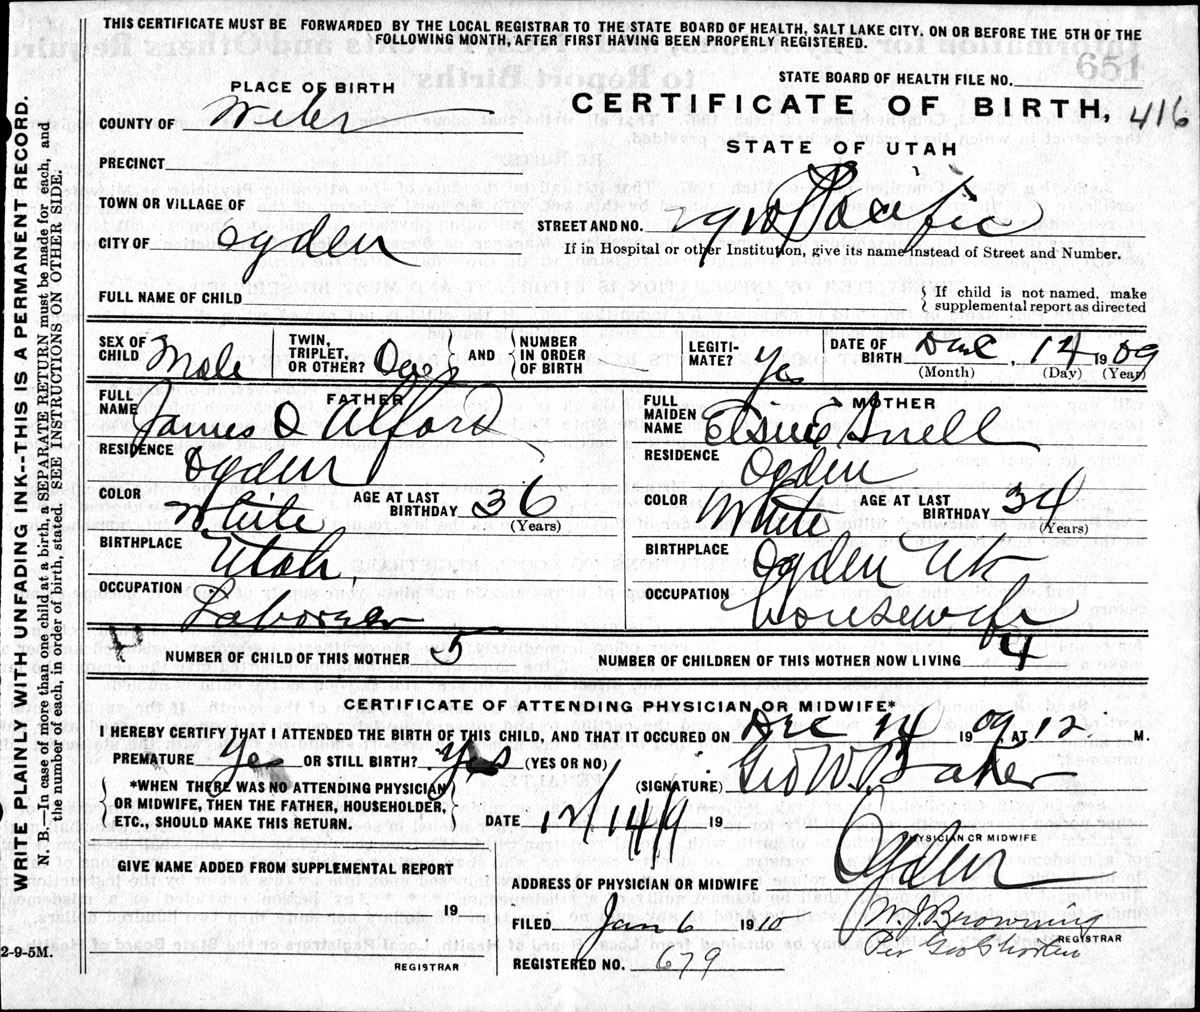 THIS CERTIFICATE MUST BE FORWARDED BY THE LOCAL REGISTRAR TO THE STATE BOARD OF HEALTH, SALT LAKE CITY, ON OR BEFORE THE 5TH OF THE
FOLLOWING MONTH, AFTER FIRST HAVING BEEN PROPERLY REGISTERED.
651
STATE BOARD OF HEALTH FILE NO.
PLACE OF BIRTH
CERTIFICATE OF BIRTH, 416
COUNTY OF Weber
STATE OF UTAH
PRECINCT
TOWN OR VILLAGE OF
STREET AND NO. Pacific
CITY OF Ogden
If Hospital or other Institution, give its name instead of Street and Number.
FULL NAME OF CHILD
If child is not named, make
supplemental report as directed
SEX OF CHILD Male
TWIN, TRIPLET, OR OTHER?
AND
NUMBER IN ORDER OF BIRTH
LEGITIMATE? Yes
DATE OF BIRTH Dec 14 1909
(Month) (Day) (Year)
FATHER
FULL NAME James O Alford
RESIDENCE Ogden
COLOR White
AGE AT LAST BIRTHDAY 36
(Years)
BIRTHPLACE Utah.
OCCUPATION Laborer
MOTHER
FULL MAIDEN NAME Elsie E Snell
RESIDENCE Ogden
COLOR White
AGE AT LAST BIRTHDAY 34
(Years)
BIRTHPLACE Ogden Ut
OCCUPATION Housewife
NUMBER OF CHILD OF THIS MOTHER 5
NUMBER OF CHILDREN OF THIS MOTHER NOW LIVING 4
CERTIFICATE OF ATTENDING PHYSICIAN OR MIDWIFE*
I HEREBY CERTIFY THAT I ATTENDED THE BIRTH OF THIS CHILD, AND THAT IT OCCURED ON Dec 14 1909, AT 12. M.
PREMATURE Yes OR STILL BIRTH? Yes (YES OR NO)
(SIGNATURE) Geo W. Baker
*WHEN THERE WAS NO ATTENDING PHYSICIAN
OR MIDWIFE, THEN THE FATHER, HOUSEHOLDER,
ETC., SHOULD MAKE THIS RETURN.
DATE 12/14/9 19
PHYSICIAN OR MIDWIFE
GIVE NAME ADDED FROM SUPPLEMENTAL REPORT
ADDRESS OF PHYSICIAN OR MIDWIFE Ogden
19
FILED Jan 6 1910
W. J. Browning
Per Geo Shorten
REGISTRAR
REGISTRAR
REGISTERED NO. 679
WRITE PLAINLY WITH UNFADING INK--THIS IS A PERMANENT RECORD.
N. B.—In case of more than one child at a birth, a SEPARATE RETURN must be made for each, and
the number of each, in order of birth, stated. SEE INSTRUCTIONS ON OTHER SIDE.
2-9-5M.